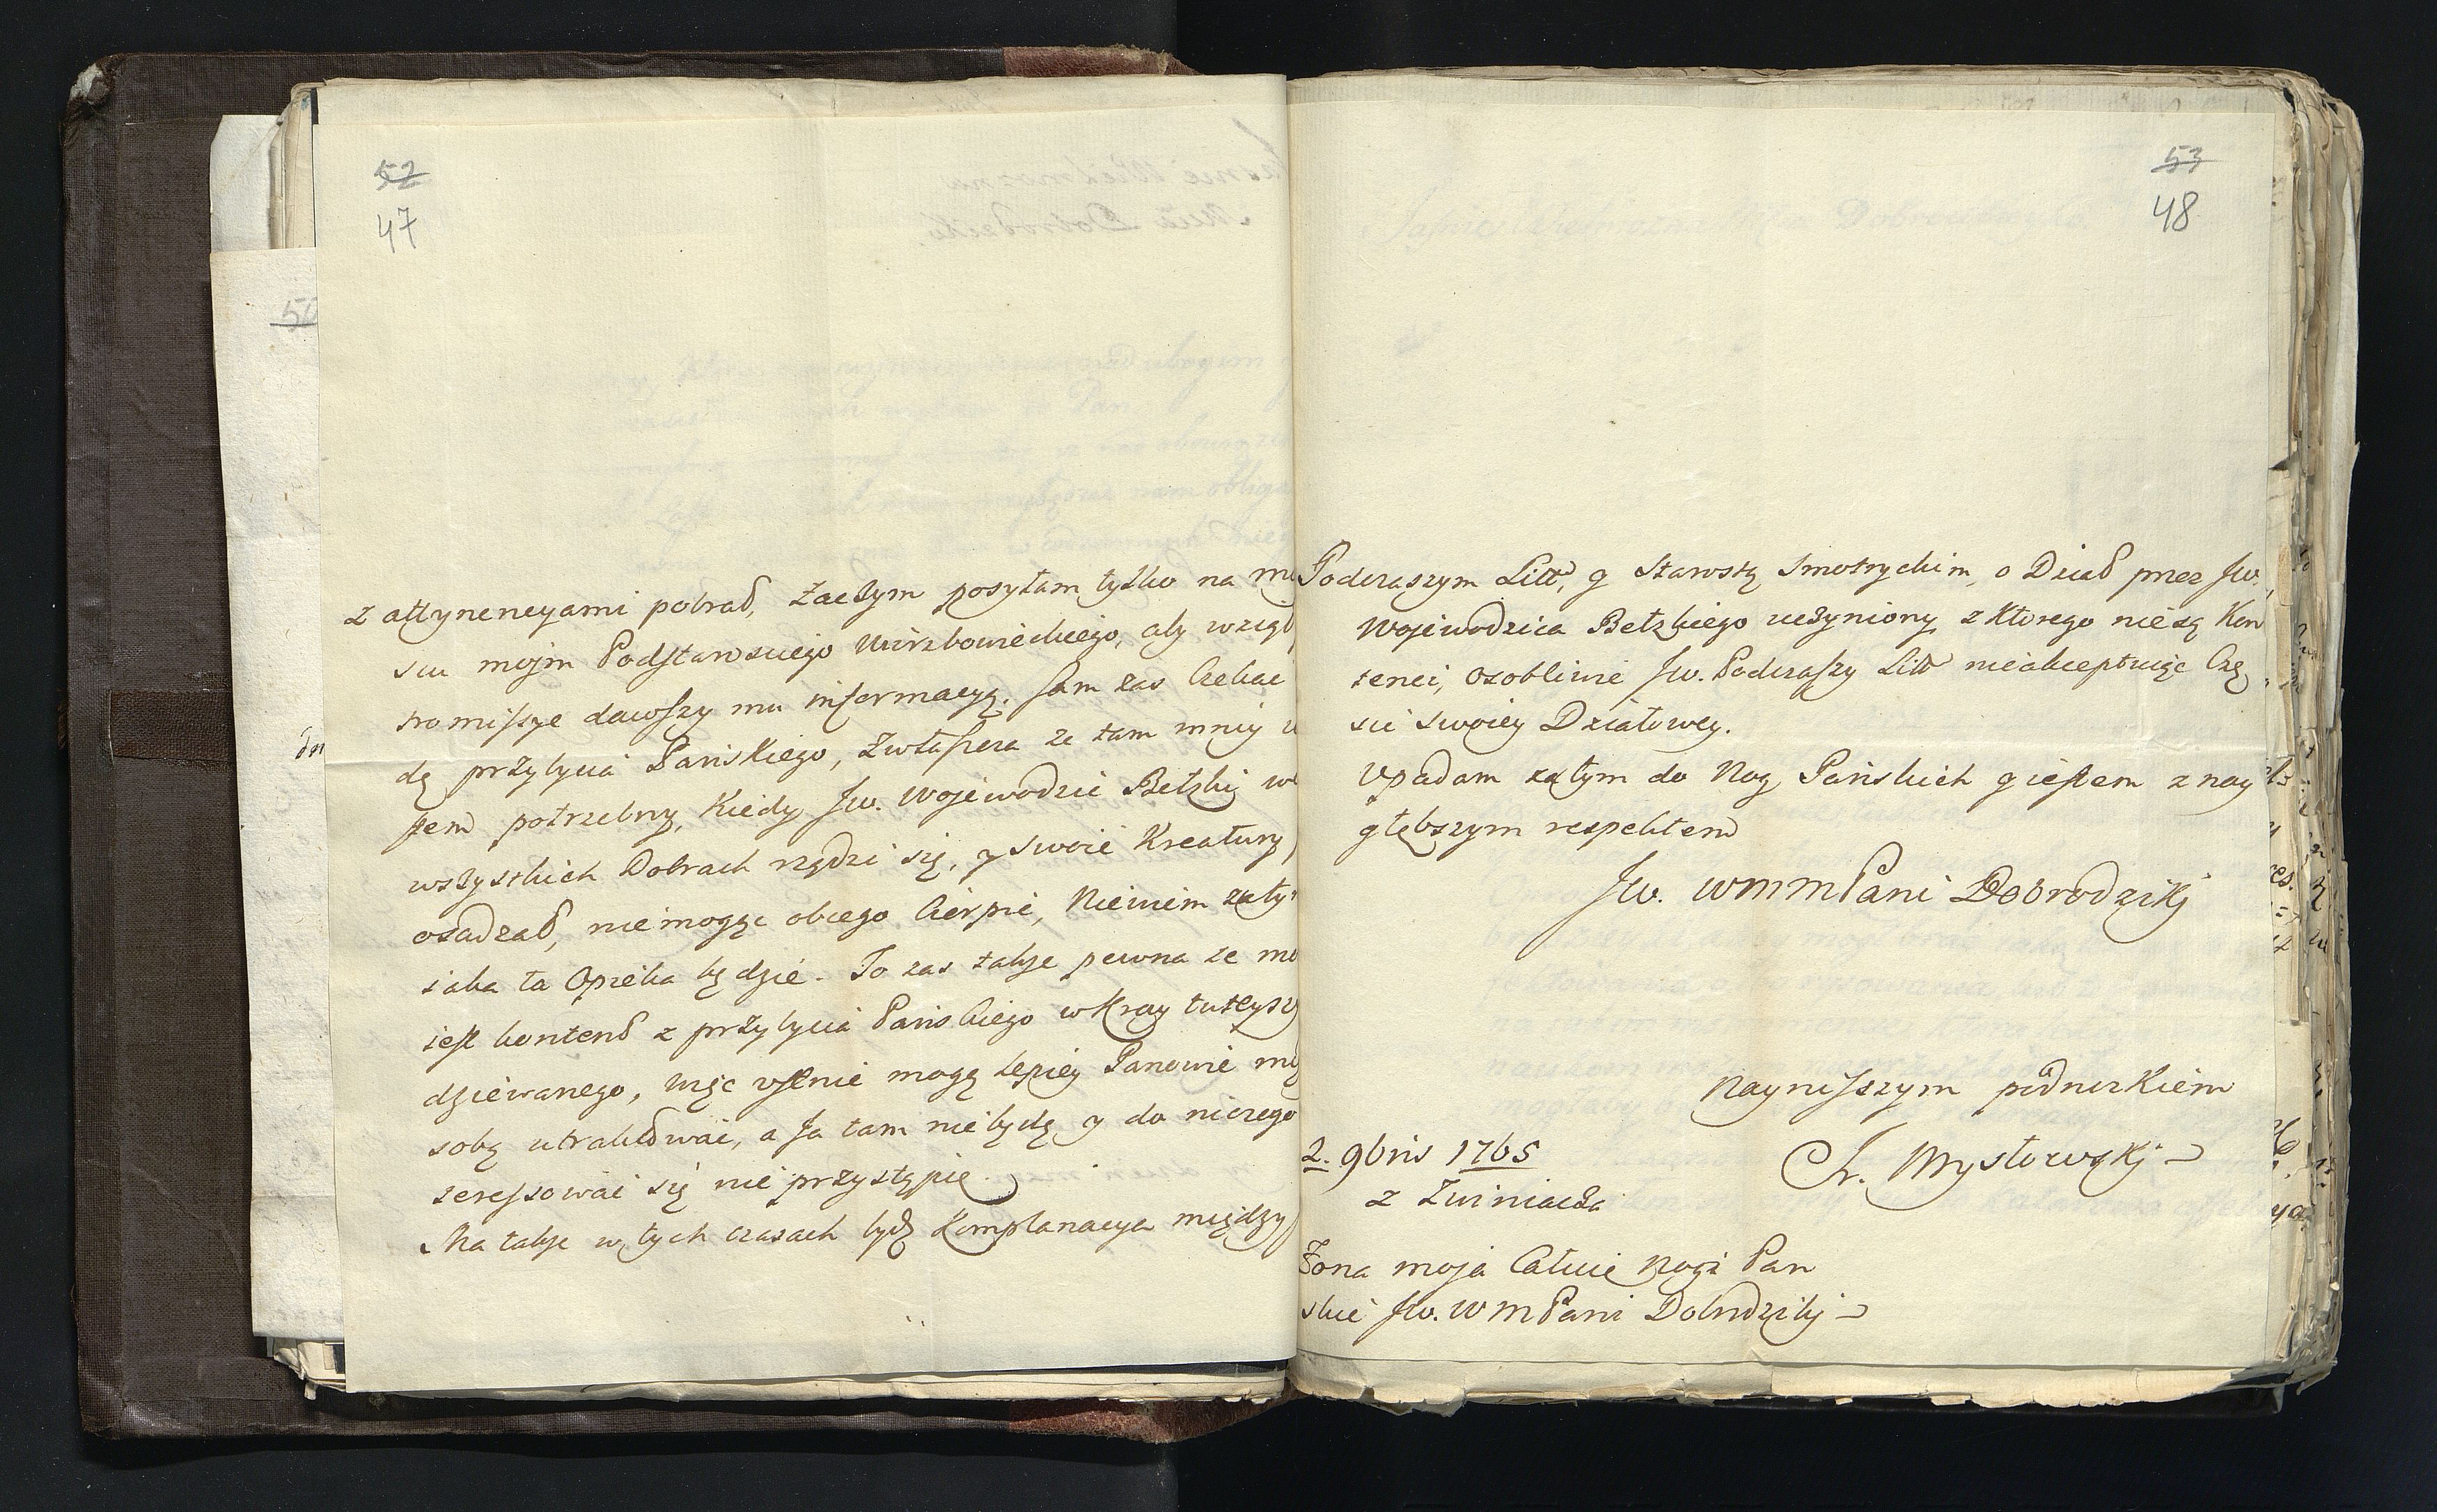 52
47
z attynencyami pobrał, Zaczym posyłam tylko na
su mojm Podstarosciego Wirzbowieckiego, aby wziął
promissye dawszy mu informacyą. Sam zas Czekac
dę przybycia Pańskiego, Zwłaszcza ze tam mniy
stem potrzebny, Kiedy Jw. Wojewodzic Bełzki we
wszystkich Dobrach rządzi się, y swoie Kreatury
osadzał, nie mogąc obcego Cierpić, Niewiem
iaka ta Opieka będzie. To zas takze pewna ze
iest kontent z przybycia Pańskiego w Kray
dziewanego, więc ustnie mogą lepiey Panowie
sobą utraktowac, a Ja tam nie będę y do niczego
teressowac się nie przystąpię.
Ma takze w tych czasach bydz Komplanacya między
53
48
Podczaszym Litt, y Starostą Smotryckim, o Dział przez Jw.
Wojewodzica Bełzkiego uczyniony, z Ktorego nie są Kon
tenci, osobliwie Jw. Podczaszy Litt nieakceptuiąc Czę
sci Swoiey Działowey.
Upadam zatym do Nog Pańskich y iestem z nay
głębszym respektem
Jw. WMMPani Dobrodziki
Nayniszszym podnozkiem
2. 9bris 1765
Mysłowski
z Zwiniacza
Zona moja Całuie Nogi Pan
skie Jw. WMPani Dobrodziki